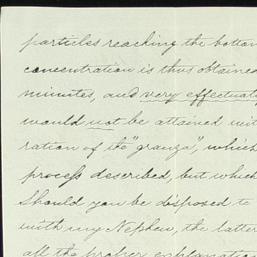 particles reaching the bottom
concentration is thus obtained
minutes, and very effectual
would not be attained wit
ration of the "granza", which
process described, but which
Should you be disposed to
with my Nephew, the latter
all the proper explanation